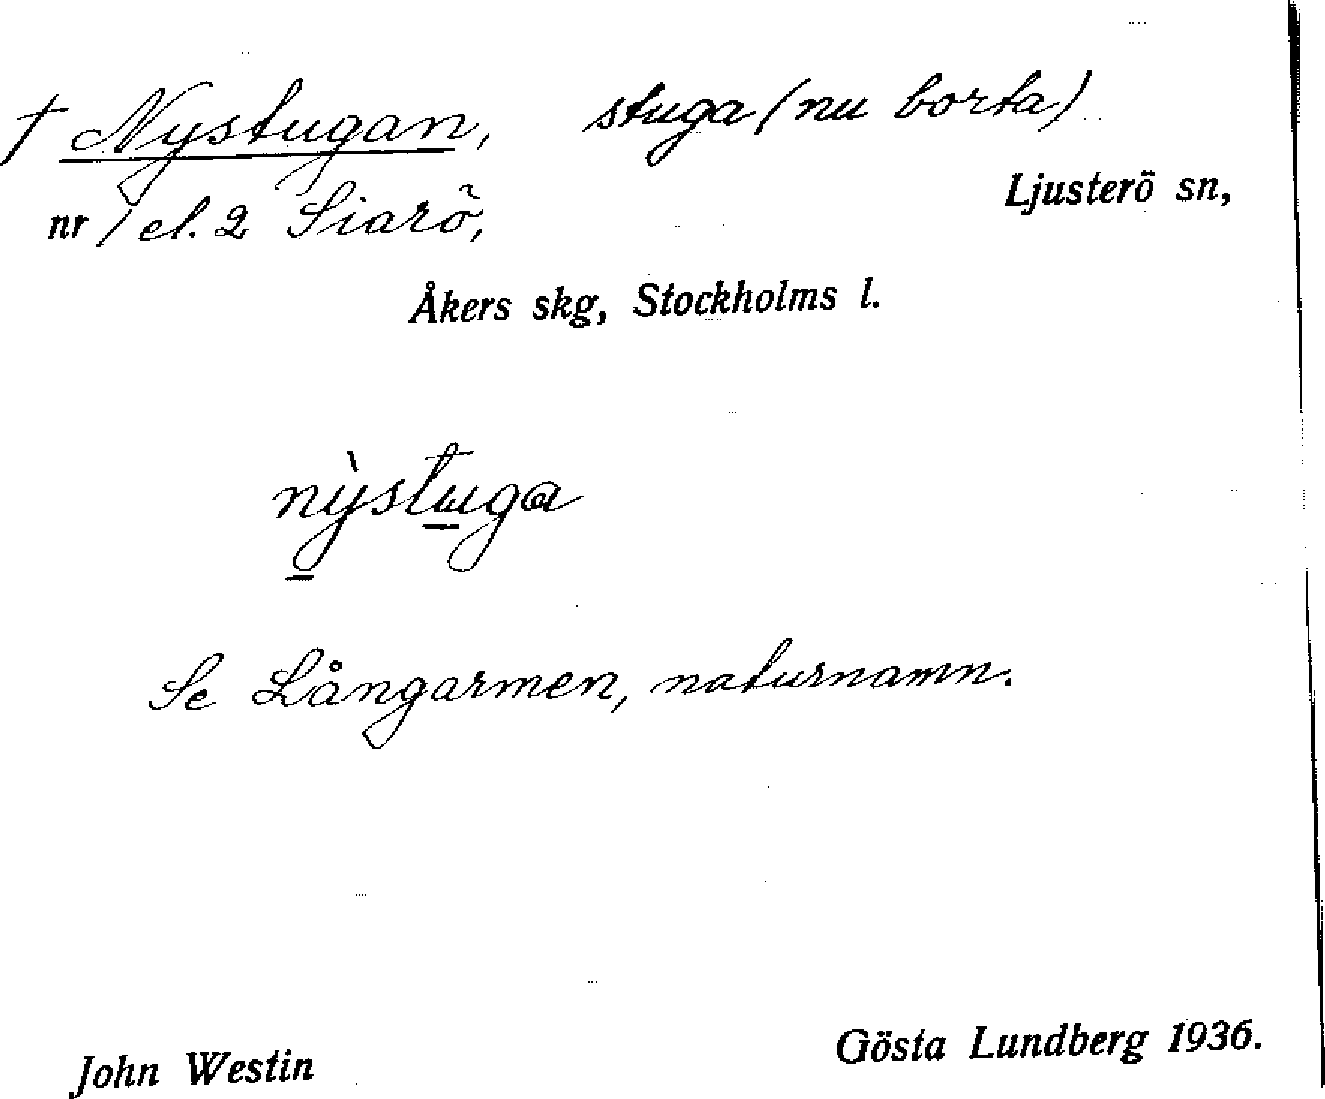 † Nystugan, stuga (nu borta)
Ljusterö sn,
nr 1 el. 2 Siarö,
Åkers skg, Stockholms l.
nỳstuga
Se Långarmen, naturnamn.
John Westin
Gösta Lundberg 1936.